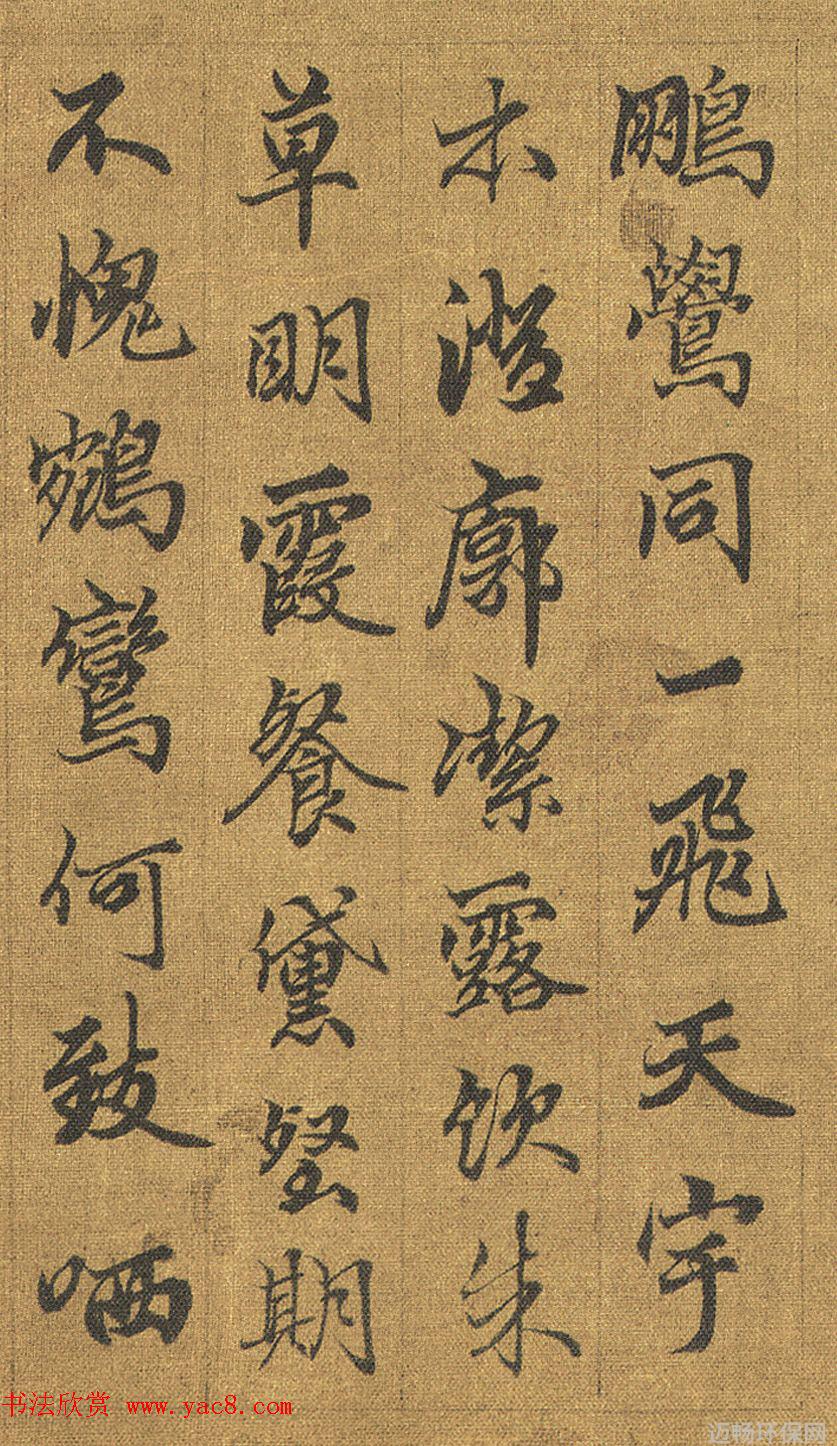 鵬鷽同一飛天宇
本澄廓潔露飲朱
草明霞餐黛壑期
不愧鵷鸞何致哂
书法欣赏 www.yac8.com
迈畅环保网